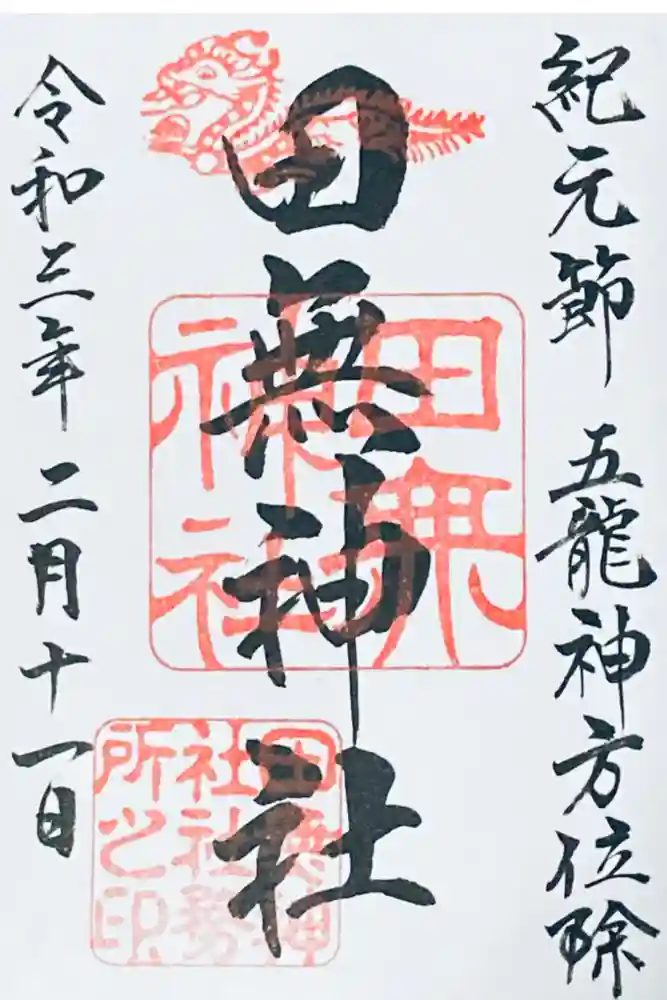 紀元節 五龍神方位除
田無神社
田無神社
田無神社社務所之印
令和三年二月十一日